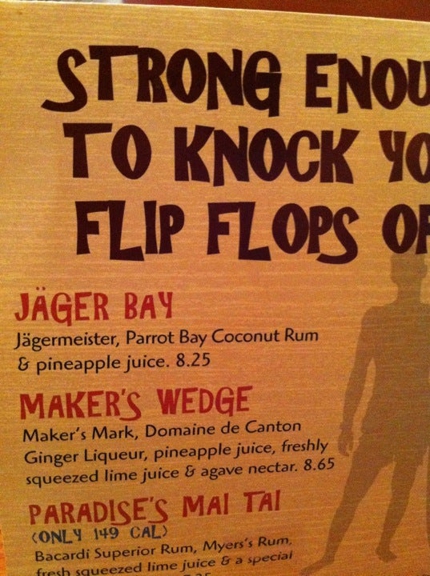 STRONG ENOU
TO KNOCK YO
FLIP FLOPS OF
JÄGER BAY
Jägermeister, Parrot Bay Coconut Rum
& pineapple juice. 8.25
MAKER'S WEDGE
Maker's Mark, Domaine de Canton
Ginger Liqueur, pineapple juice, freshly
squeezed lime juice & agave nectar. 8.65
PARADISE'S MAI TAI
(ONLY 149 CAL)
Bacardi Superior Rum, Myers's Rum,
fresh squeezed lime juice & a special